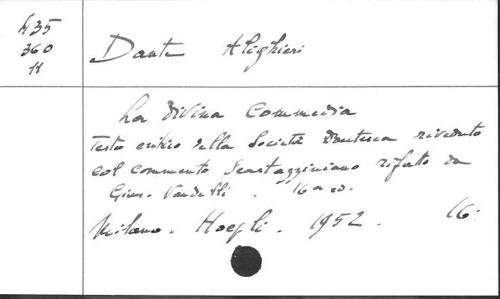 435
360
11
Dante Alighieri
La Divina Commedia
Testo critico della Società Dantesca riveduto
col commento Scartazziniano rifatto da
Gius. Vandelli. 16a ed.
Milano. Hoepli. 1952. 16.